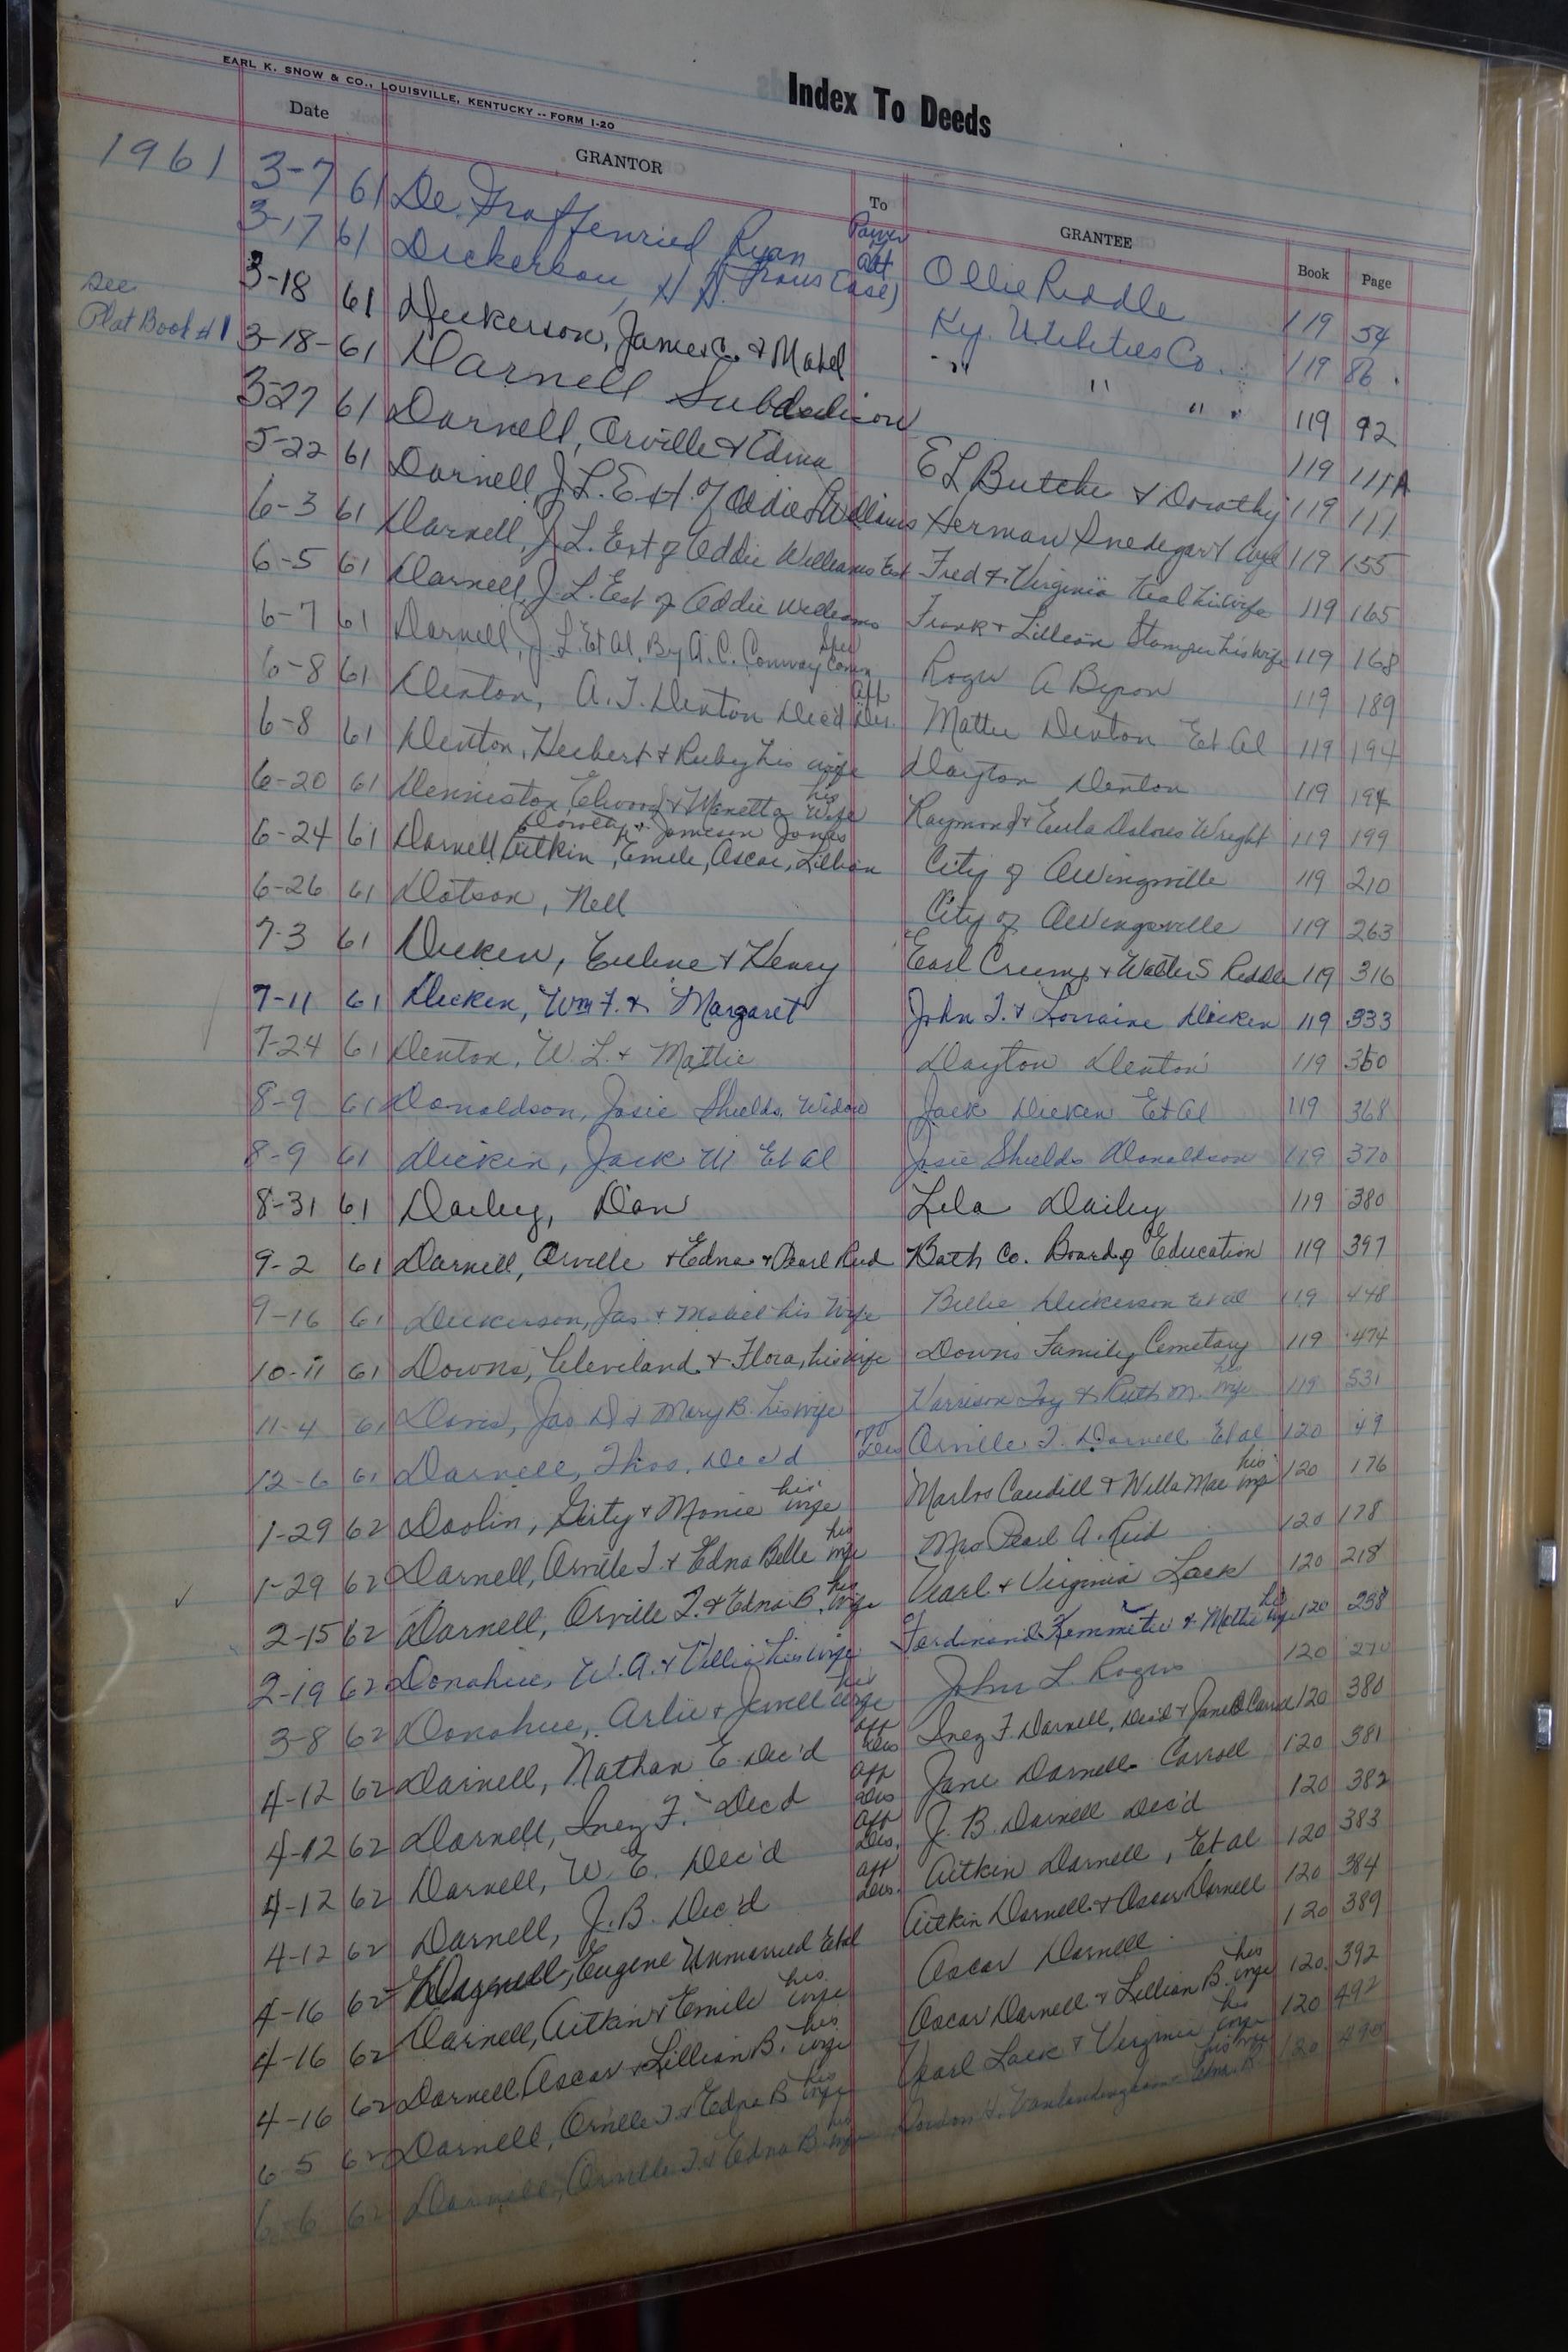 Index To Deeds
EARL K. SNOW & CO., LOUISVILLE, KENTUCKY -- FORM I-20
Date GRANTOR To GRANTEE Book Page
1961
3-7 61 De Graffenried Ryan Power of Att Ollie Riddle 119 54
3-17 61 Dickerson, H H. Trans (ase) Ky. Utilities Co. 119 86
3-18 61 Dickerson, James C. & Mabel " " " 119 92
see Plat Book #1 3-18-61 Darnell Subdivision 119 111A
3-27 61 Darnell, Orville & Edna E L Butcher & Dorothy 119 111
5-22 61 Darnell J. L. Est. of Addie Williams Herman Snedegar & 119 155
6-3 61 Darnell, J. L. Est of Addie Williams Est Fred & Virginia his wife 119 165
6-5 61 Darnell, J. L. Est of Addie Williams Frank & Lillian Stamper his wife 119 168
6-7 61 Darnell, J. L. Et Al, By A. C. Conway Spec Comm Roger A Byron 119 189
6-8 61 Denton, A. J. Denton Dec'd Aff Des. Mattie Denton Et Al 119 194
6-8 61 Denton, Herbert & Ruby his wife Dayton Denton 119 194
6-20 61 Denniston, Elwood & Manetta his Wife Raymond & Eula Dolores Wright 119 199
Dorothy & Jameson Jones
6-24 61 Darnell, Aitkin, Emele, Ascar, Lillian City of Owingsville 119 210
6-26 61 Dotson, Nell City of Owingsville 119 263
7-3 61 Dicken, Eulene & Henry Earl Crump & Walter S Riddle 119 316
7-11 61 Dicken, Wm F. & Margaret John T. & Lorraine Dicken 119 333
7-24 61 Denton, W. L. & Mattie Dayton Denton 119 350
8-9 61 Donaldson, Josie Shields, Widow Jack Dicken Et Al 119 368
8-9 61 Dicken, Jack W Et al Josie Shields Donaldson 119 370
8-31 61 Dailey, Dan Lela Dailey 119 380
9-2 61 Darnell, Orville & Edna & Pearl Reid Bath Co. Board of Education 119 397
9-16 61 Dickerson, Jas & Mabel his Wife Billie Dickerson Et al 119 448
10-11 61 Downs, Cleveland & Flora, his wife Downs Family Cemetary 119 474
11-4 61 Davis, Jas D & Mary B. his wife Harrison Toy & Ruth M. his wife 119 531
12-6 61 Darnell, Thos. Dec'd Des Orville T. Darnell Et al 120 49
1-29 62 Doolin, Girty & Monie his wife Marlos Caudill & Willa Mae his wife 120 176
1-29 62 Darnell, Orville T. & Edna Belle his wife Mrs Pearl A. Reid 120 178
2-15 62 Darnell, Orville T. & Edna B. his wife Pearl & Virginia Lack 120 218
2-19 62 Donahue, W. A. & his wife Ferdinand & Mattie his wife 120 238
3-8 62 Donohue, Arlie & Jewell his wife John L. Rogers 120 270
4-12 62 Darnell, Nathan E. Dec'd Aff Des Inez F. Darnell, Dec'd & Jane D Carroll 120 380
4-12 62 Darnell, Inez F. Dec'd Aff Des Jane Darnell Carroll 120 381
4-12 62 Darnell, W. E. Dec'd Aff Des. J. B. Darnell Dec'd 120 382
4-12 62 Darnell, J. B. Dec'd Aff Des. Aitkin Darnell, Et al 120 383
4-16 62 Darnell, Eugene Unmarried Et al Aitkin Darnell & Oscar Darnell 120 384
4-16 62 Darnell, Aitkin & Emile his wife Oscar Darnell 120 389
4-16 62 Darnell, Oscar & Lillian B. his wife Oscar Darnell & Lillian B. his wife 120 392
6-5 62 Darnell, Orville T. & Edna B his wife Pearl Lack & Virginia his wife 120 492
6-6 62 Darnell, Orville T. & Edna B his wife Gordon H. Vanlandingham his wife 120